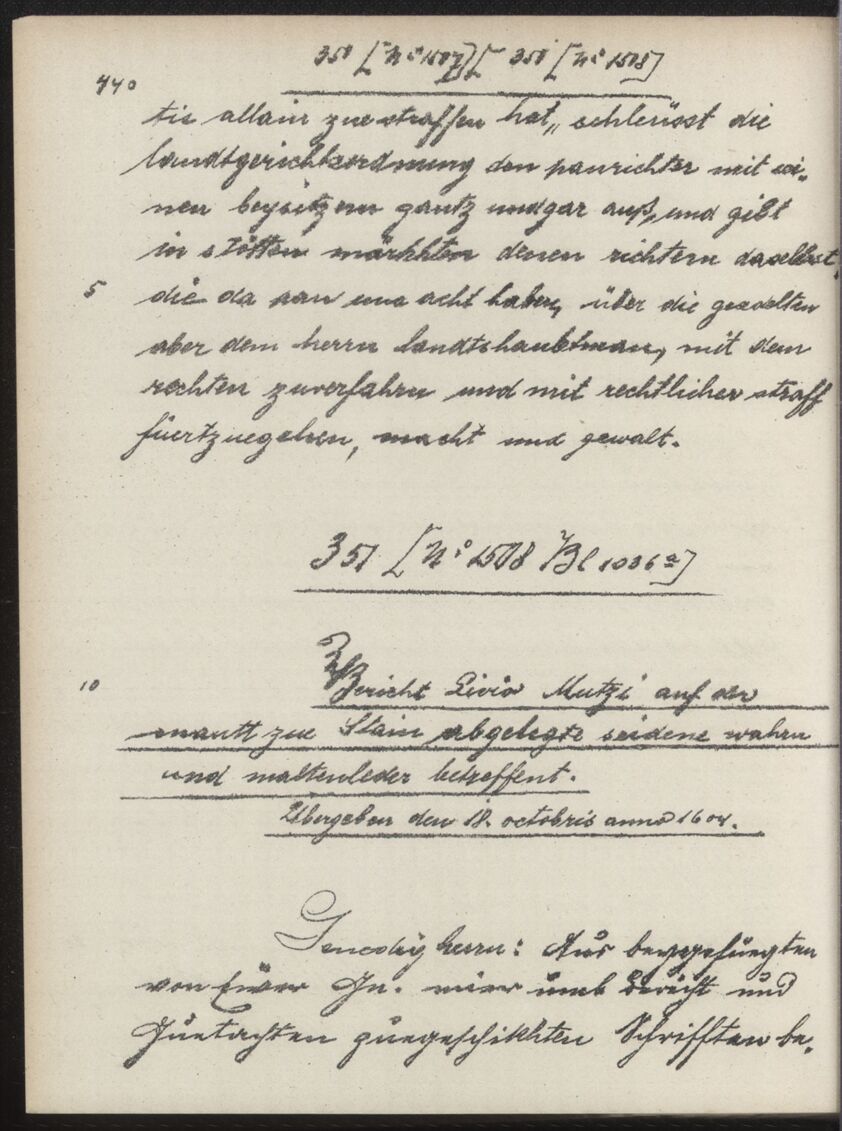 350 [No 1507] [ 350 [No 1508]
440
tis allain zue straffen hat, schleüsst die
landtgerichtsordnung den panrichter mit sei-
nen beysitzern gantz und gar auß, und gibt
in stötten märkhten denen richtern daselbst,
5 die da pan und acht haben, über die
aber dem herrn landtshaubtman, mit dem
rechten zuverfahrn und mit rechtlicher straff
fuertzuegehen, macht und gewalt.
351 [No 1508 Bl 1036a]
10 Bericht Livio Mutzi auf der
mautt zue Stain abgelegte seidene wahrn
und betreffent.
Übergeben den 18. octobris anno 1604.
Genedig herrn: Aus beygefüegten
von Eüer Gn. mier umb bericht und
Guetachten zuegeschikhten Schrifften be-